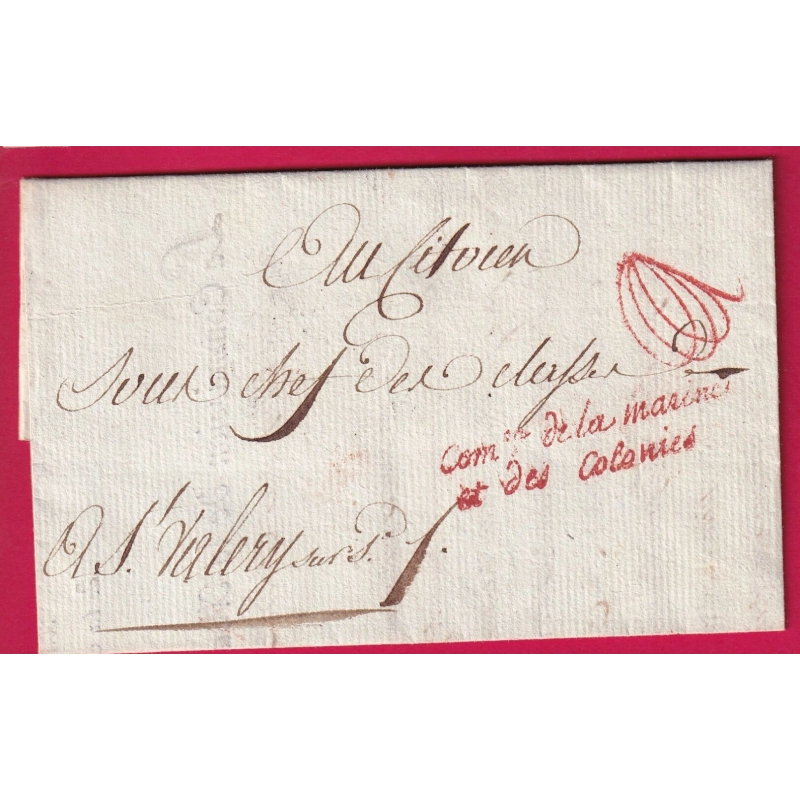 Au Citoien
sous chef des classes
Com.on de la marine
et des Colonies
A St Valery sur S.e